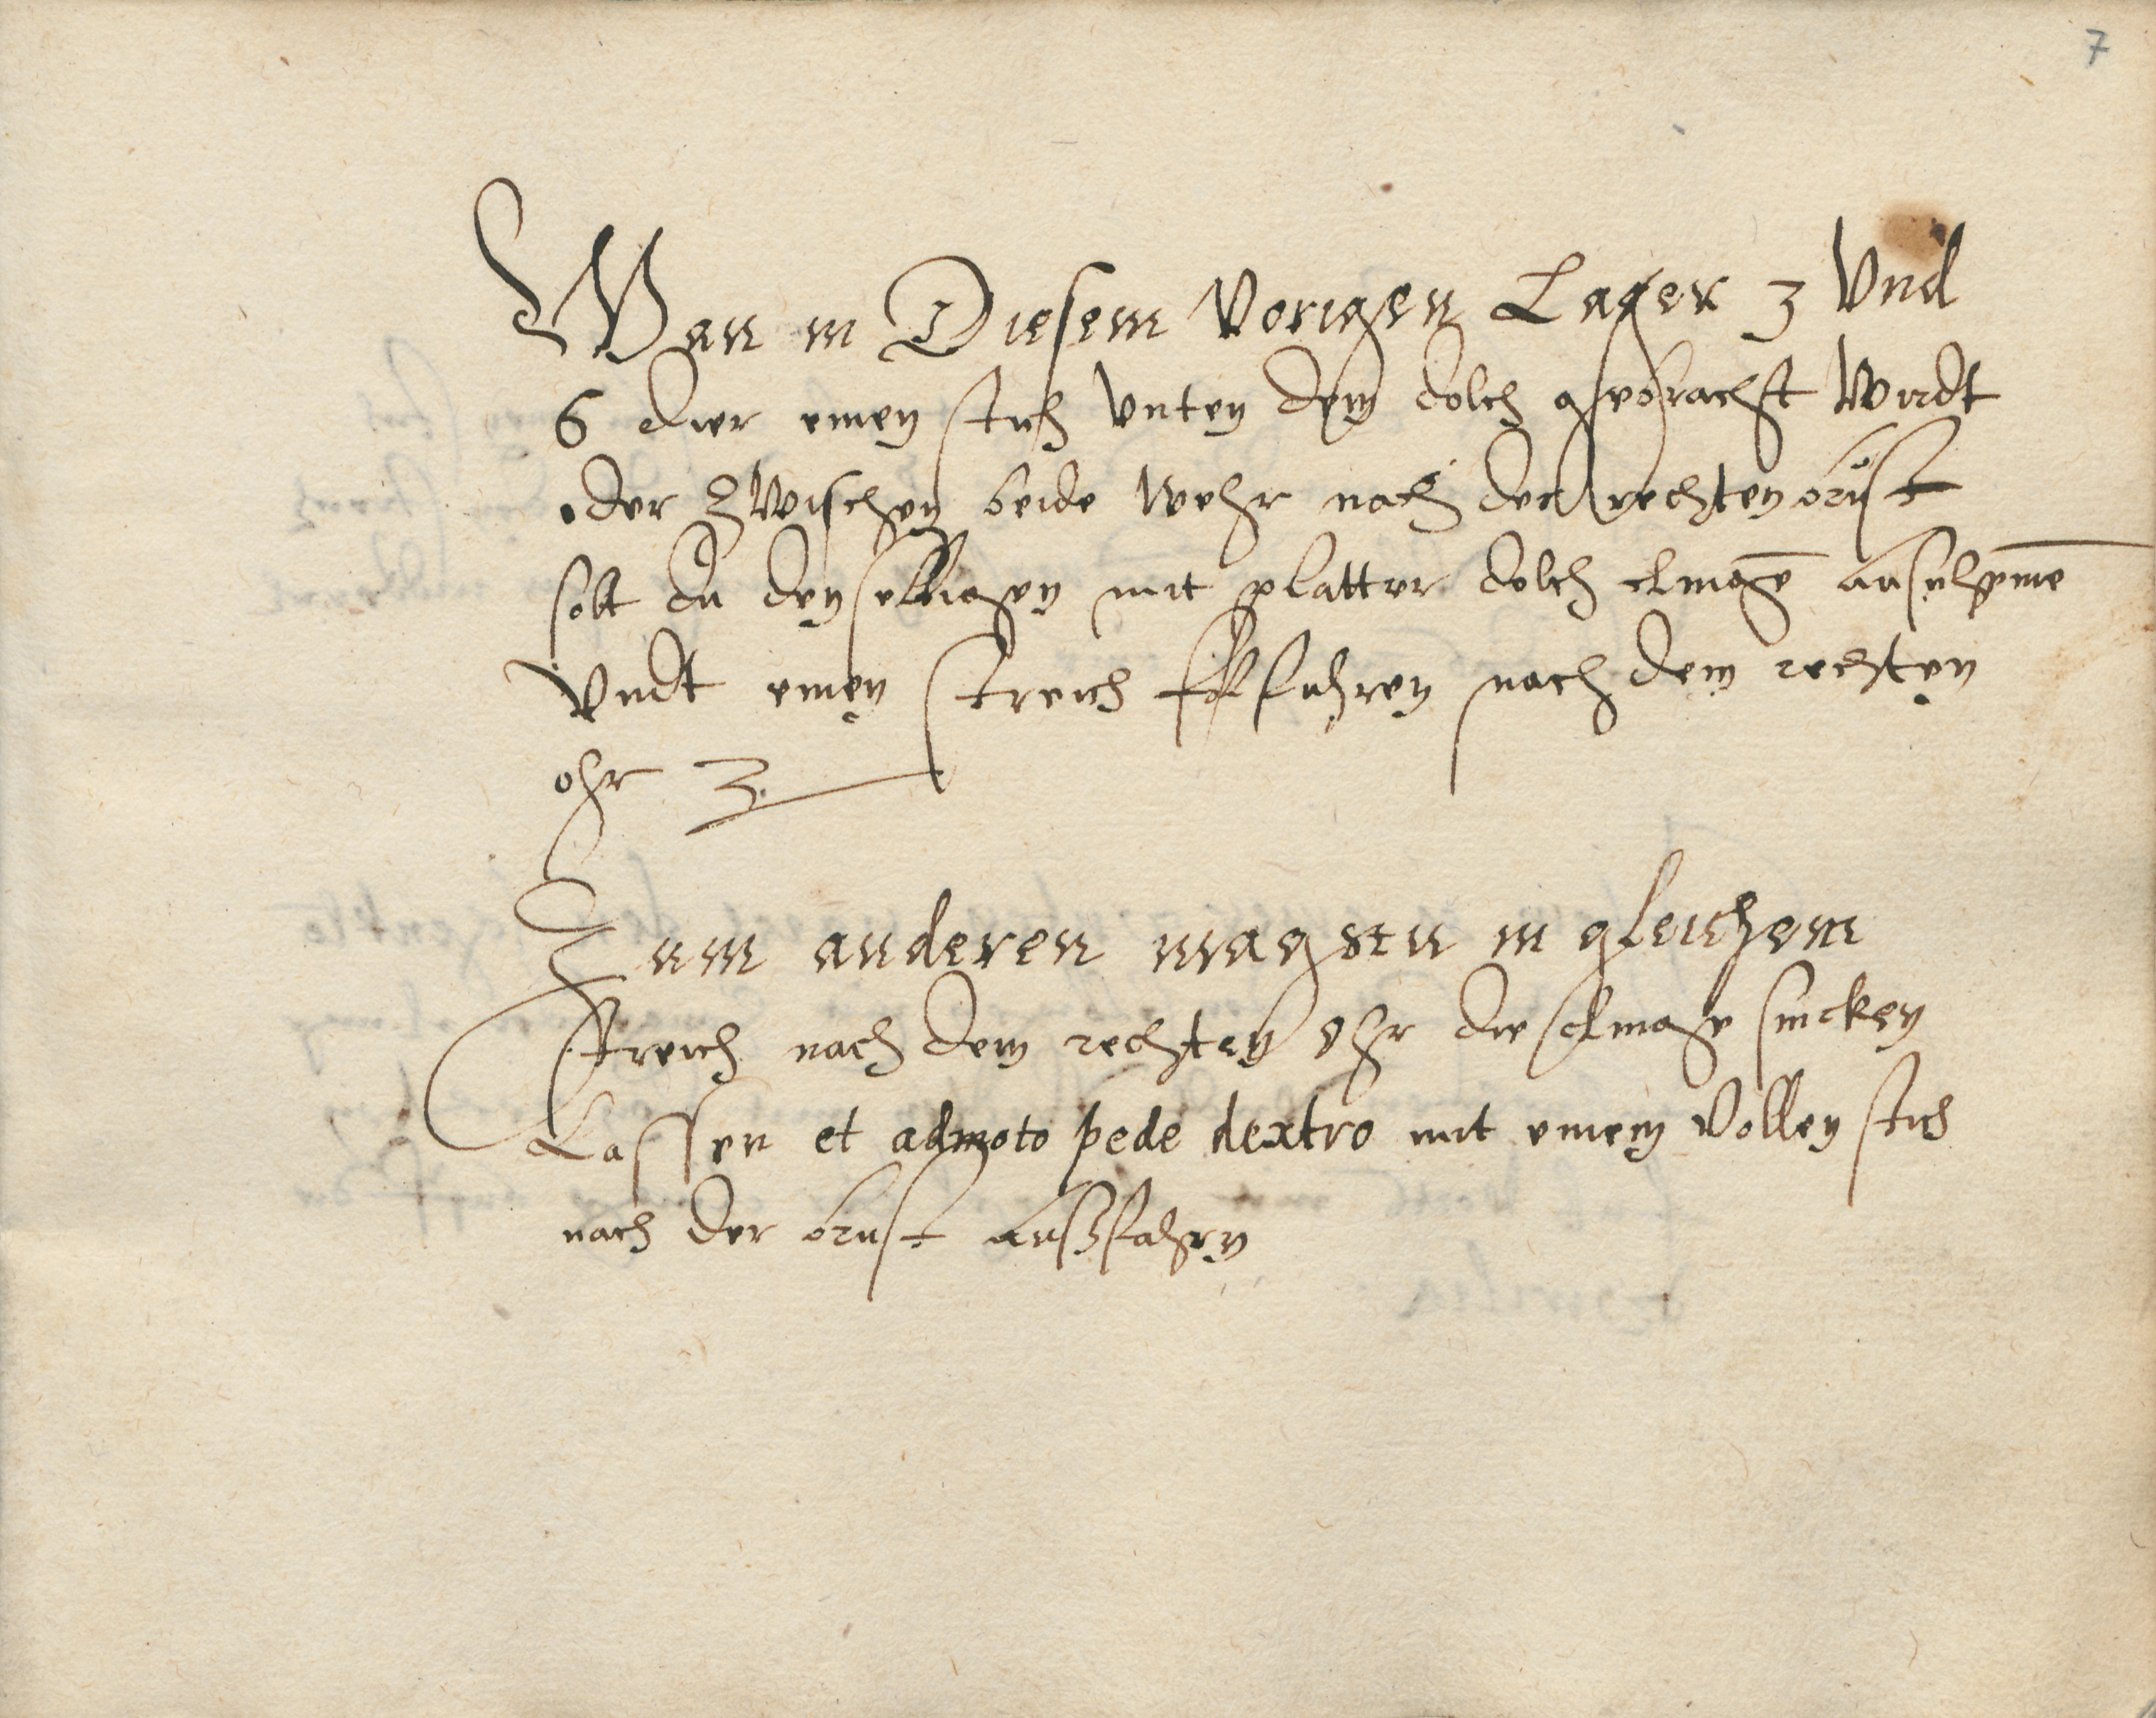 7
Wan in Diesem Vorigen Lager 3 Vnd
6 dier einen stich Vnten dem dolch gebracht Wirdt
oder zwischen beide Wehr nach der rechten brust
solt du denselbigen mit platter dolch clinge
Vndt einen streich fahren nach dem rechten
ohr 3.
Zum anderen magstu in gleichem
streich nach dem rechten Ohr die clinge sincken
Lassen et admoto pede dextro mit einem Vollen stich
nach der brust außfahren